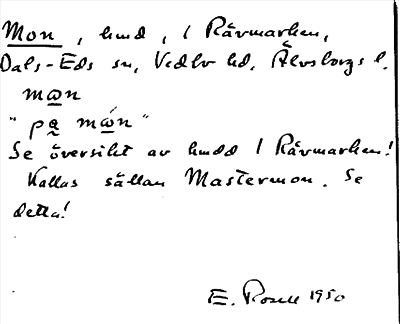 Mon, hmd, i Rävmarken,
Dals-Eds sn, Vedbo hd, Älvsborgs l.
mωn
"pα mώn"
Se översikt av hmdd i Rävmarken!
Kallas sällan Mastermon. Se
detta!
E. Rosell 1950